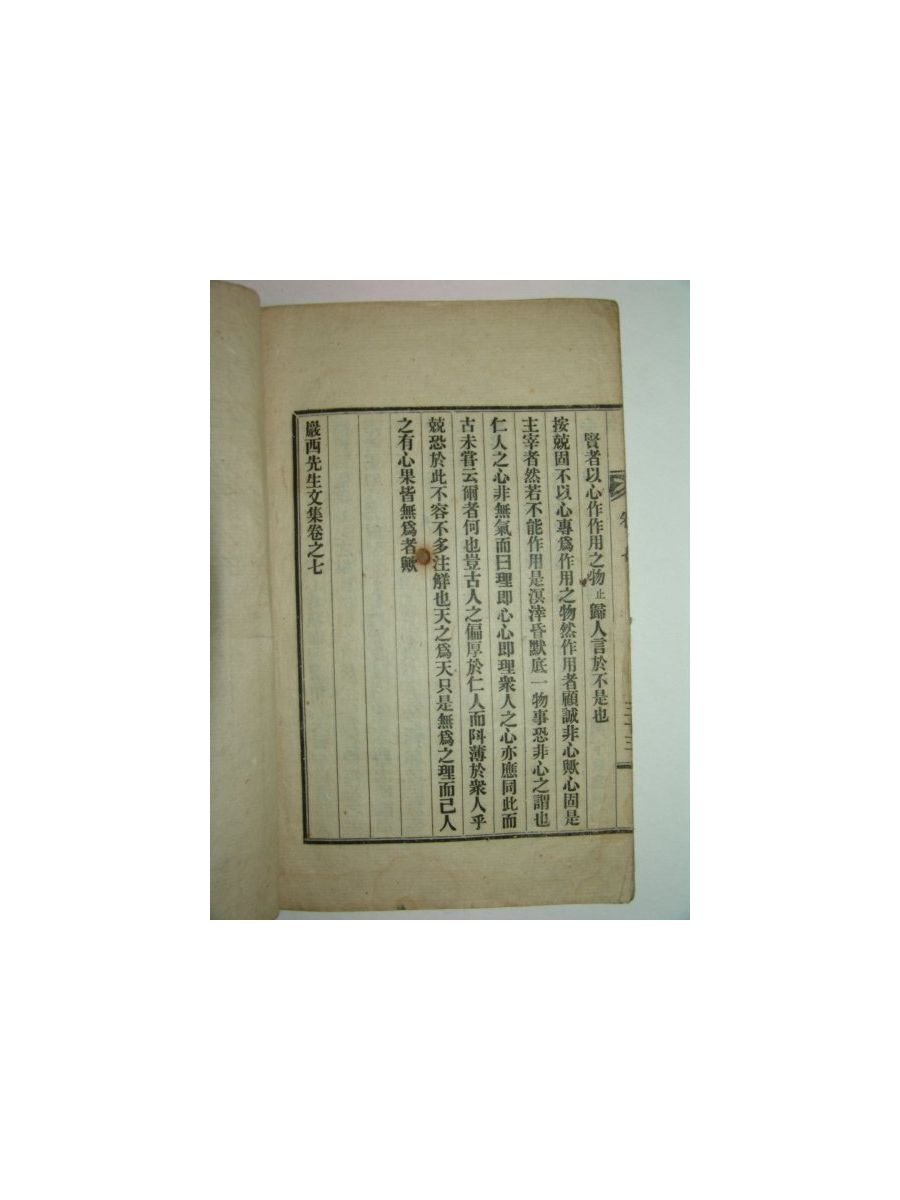 賢者以心作作用之物止歸人言於不是也
按兢固不以心專爲作用之物然作用者顧誠非心歟心固是
主宰者然若不能作用是溟涬昏默底一物事恐非心之謂也
仁人之心非無氣而曰理卽心心卽理衆人之心亦應同此而
古未嘗云爾者何也豈古人之偏厚於仁人而㪷薄於衆人乎
兢恐於此不容不多注解也天之爲天只是無爲之理而已人
之有心果皆無爲者歟
巖西先生文集卷之七